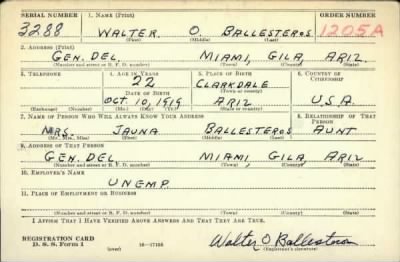 SERIAL NUMBER 1. NAME (Print) ORDER NUMBER
3288 WALTER O. BALLESTEROS 1205A
(First) (Middle) (Last)
2. ADDRESS (Print)
GEN. DEL. MIAMI, GILA, ARIZ.
(Number and street or R. F. D. number) (Town) (County) (State)
3. TELEPHONE 4. AGE IN YEARS 5. PLACE OF BIRTH 6. COUNTRY OF CITIZENSHIP
22 CLARKDALE
DATE OF BIRTH (Town or county)
OCT. 10, 1919 ARIZ U.S.A.
(Exchange) (Number) (Mo.) (Day) (Yr.) (State or country)
7. NAME OF PERSON WHO WILL ALWAYS KNOW YOUR ADDRESS 8. RELATIONSHIP OF THAT PERSON
MRS. JAUNA BALLESTEROS AUNT
(Mr., Mrs., Miss) (First) (Middle) (Last)
9. ADDRESS OF THAT PERSON
GEN. DEL. MIAMI, GILA, ARIZ
(Number and street or R. F. D. number) (Town) (County) (State)
10. EMPLOYER'S NAME
UNEMP.
11. PLACE OF EMPLOYMENT OR BUSINESS
(Number and street or R. F. D. number) (Town) (County) (State)
I AFFIRM THAT I HAVE VERIFIED ABOVE ANSWERS AND THAT THEY ARE TRUE.
REGISTRATION CARD
D. S. S. Form 1 (over) 16-17105 Walter O Ballesteros
(Registrant's signature)